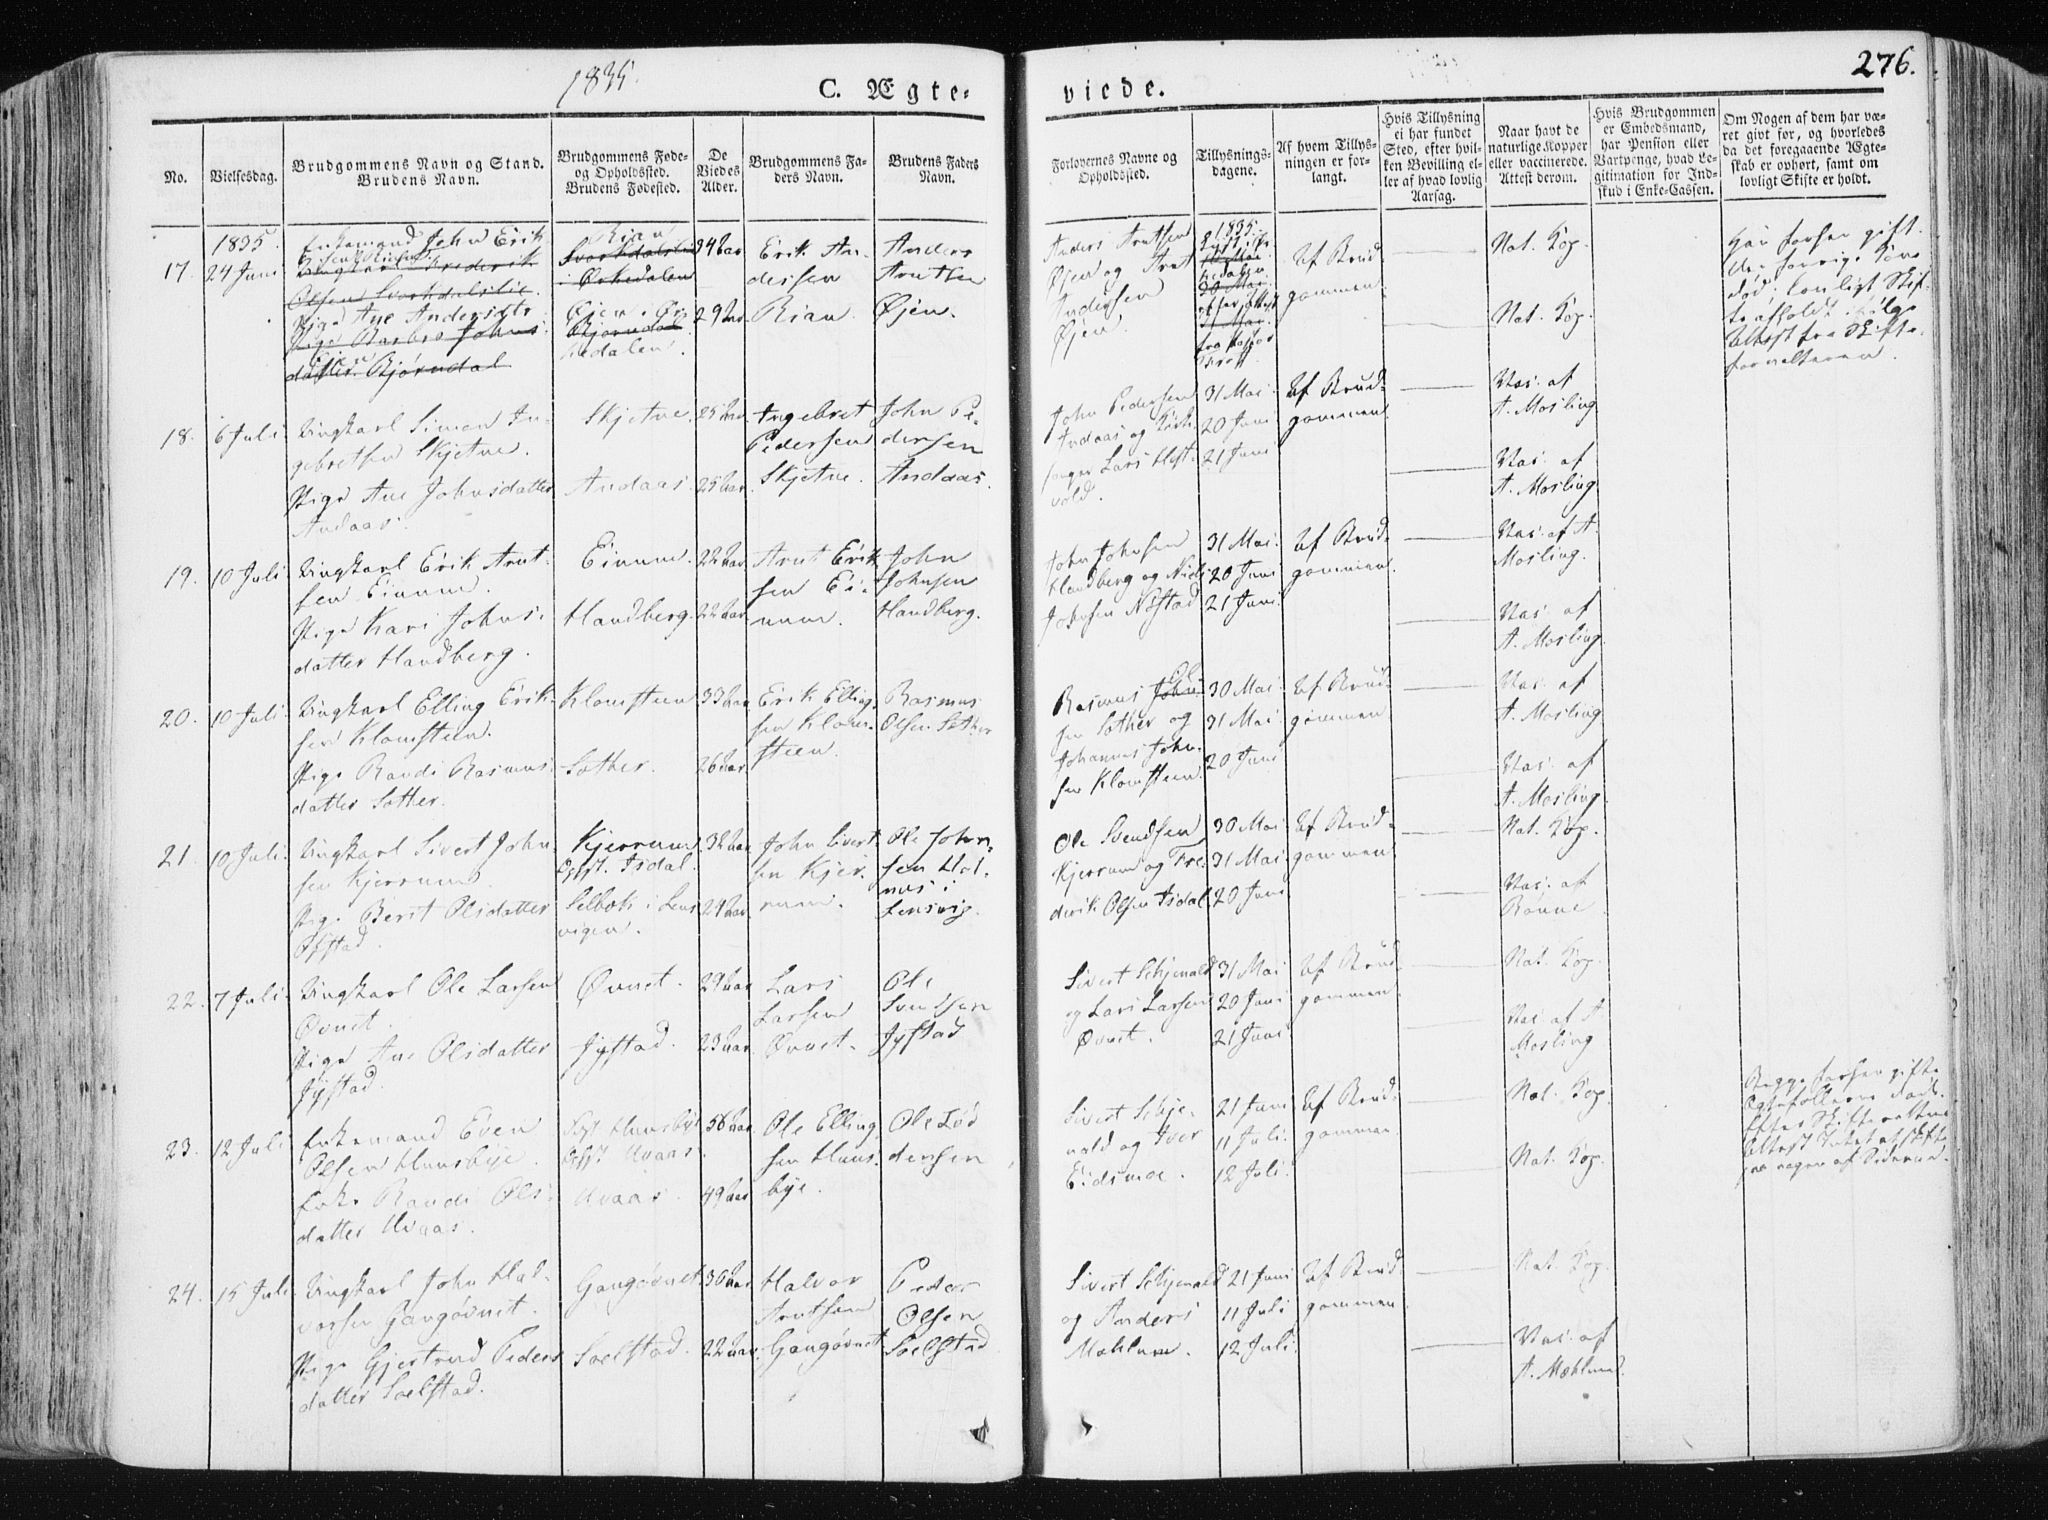 1835.
C. Ægte-
viede.
276.
No.
Vielsesdag.
Brudgommens Navn og Stand.
Brudens Navn.
Brudgommens Føde-
og Opholdssted.
Brudens Fødested.
De
Viedes
Alder.
Brudgommens Fa-
ders Navn.
Brudens Faders
Navn.
Forlovernes Navne og
Opholdssted.
Tillysnings-
dagene.
Af hvem Tillys-
ningen er for-
langt.
Hvis Tillysning
ei har fundet
Sted, efter hvil-
ken Bevilling el-
ler af hvad lovlig
Aarsag.
Naar havt de
naturlige Kopper
eller vaccinerede.
Attest derom.
Hvis Brudgommen
er Embedsmand,
har Pension eller
Vartpenge, hvad Le-
gitimation for Ind-
skud i Enke-Cassen.
Om Nogen af dem har væ-
ret givt før, og hvorledes
da det foregaaende Ægte-
skab er ophørt, samt om
lovligt Skifte er holdt.
1835.
17.
24 Juni
Enkemand John Erik-
Ungkarl Frederik
Olsen Svorkdalslie
Pige Ane Andersdtr
Pige Barbro Johns
Øjen
datter Bjørndal
Rian
Svorkdalslie
i Ørkedalen
Øjen i Ør-
Bjørndal
kedalen.
34 Aar
29 Aar
Erik An-
dersen
Rian
Anders
Arntsen
Øjen.
Anders Arntsen
Øjen og Arnt
Andersen
Øjen.
1835.
30 Mai
31 Mai
Af Brud
gommen.
Nat. Kop
Nat. Kop.
Har forhen gift.
død, lovligt Skif-
te afholdt ifølge
Attest fra Skifte-
forvalteren.
18.
6 Juli.
Ungkarl Simon In-
gebretsen Skjetne.
Pige Ane Johnsdatter
Andaas.
Skjetne
Andaas
25 Aar
25 Aar
Ingebret
Pedersen
Skjetne.
John Pe-
dersen
Andaas.
John Pedersen
Andaas og Kirk-
sanger Lars Hest-
vold.
31 Mai
20 Juni
21 Juni
Af Brud-
gommen.
Vas. af
A. Mosling
Vas. af
A. Mosling
19.
10 Juli
Ungkarl Erik Arnt-
sen Einum.
Pige Kari Johns-
datter Handberg.
Einum.
Handberg.
22 Aar
22 Aar
Arnt Erik
sen Ei-
num.
John
Johnsen
Handberg.
John Johnsen
Handberg og Niels
Johnsen Nystad
31 Mai.
20 Juni
21 Juni
Af Brud-
gommen.
Vas. af A.
Mosling.
Vas. af
A. Mosling.
20.
10 Juli.
Ungkarl Elling Erik-
sen Klomsteen.
Pige Randi Rasmus-
datter Sother.
Klomsteen
Sother.
33 Aar
26 Aar.
Erik Elling-
sen Klom-
steen.
Rasmus
Olsen Sother
Rasmus John- Ol-
sen Sother og
Johannes John-
sen Klomsteen
30 Mai
31 Mai
20 Juni
Af Brud-
gommen
Vas. af
A. Mosling
Vas. af
A. Mosling.
21.
10 Juli.
Ungkarl Sivert John
sen Kjerrum.
Pige Berit Olsdatter
Ofstad.
Kjerrum
Opst. Isdal.
Selbek i Lens
vigen.
32 Aar
24 Aar
John Sivert
sen Kjer-
rum.
Ole John-
sen Hol-
nes i
Lensvig.
Ole Svendsen
Kjerrum og Fre-
derik Olsen Isdal
30 Mai
31 Mai
20 Juni
Af Brud-
gommen
Nat. Kop.
Vas. af
Rønne
22.
7 Juli.
Ungkarl Ole Larsen
Øvnet.
Pige Ane Olsdatter
Jystad.
Øvnet.
Jystad.
29 Aar
23 Aar.
Lars
Larsen
Øvnet.
Ole
Svendsen
Jystad
Sivert Schjenald
og Lars Larsen
Øvnet.
31 Mai
20 Juni
21 Juni
Af Brud
gommen
Nat. Kop.
Vas. af A
Mosling
23.
12 Juli
Enkemand Even
Olsen Hunsbye.
Enke Randi Ols-
datter Uvaas.
Uvaas.
Uvaas.
56 Aar
49 Aar
Ole Elling
sen Huns-
bye.
Ole Lod
densen
Sivert Schje-
nald og Iver
Eidsmoe.
21 Juni
11 Juli.
12 Juli.
Af Brud-
gommen
Nat. Kop.
Nat. Kop.
Begge forhen gifte
24.
15 Juli
Ungkarl John Hal-
vorsen Gangøvnet.
Pige Gjertrud Peders
datter Soelstad.
Gangøvnet
Soelstad.
36 Aar
22 Aar.
Halvor
Arntsen
Gangøvnet
Peder
Olsen
Soelstad
Sivert Schjenald
og Anders
Mæhlum.
21 Juni
11 Juli
12 Juli.
Af Brud
gommen
Nat. Kop.
Vas. af
A. Mæhlum